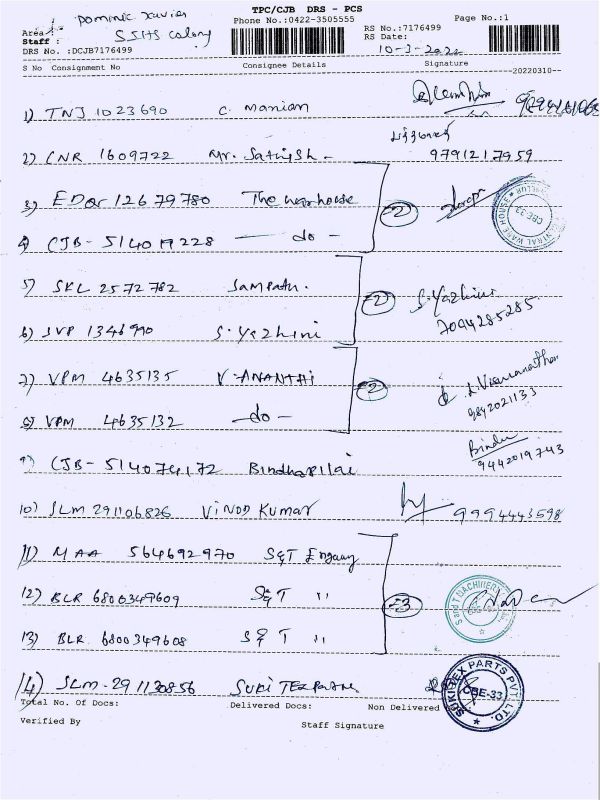 TPC/CJB DRS - PCS
Dominic Xavier
Phone No.:0422-3505555
Page No.:1
Area :
SSHS colony
RS No.:7176499
Staff :
RS Date:
10-3-2022
DRS No. :DCJB7176499
S No Consignment No Consignee Details Signature
20220310
1) TNJ 1023690 C. Manian
2) CNR 1609722 Mr. Sathish - 9791217959
3) EDQR 12679780 The warehouse
-2)
CENTRAL WAREHOUSE CBE-33
4) CJB- 514019228 - do -
5) SKL 2572782 Sampath.
-2) S. Yazhini
7094285285
6) SVP 1346990 S. Yazhini
7) VPM 4635135 V. ANANTHI
-2) L. Viswanathan
9842021133
8) VPM 4635132 - do -
Bindu
9442019743
9) CJB- 514074172 Bindhapilai
10) SLM 291106826 Vinod Kumar 9994443598
11) MAA 564692970 S&T Enguny
12) BLR 6800349609 S&T "
-3
S and T MACHINERY
13) BLR 6800349608 S&T "
14) SLM-291130856 SUKI TEX
SUKITEX PARTS PVT. LTD. CBE-33
Total No. Of Docs: Delivered Docs: Non Delivered
Verified By Staff Signature